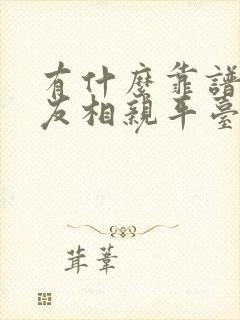 有什麼靠譜
友相親平臺
茸葦